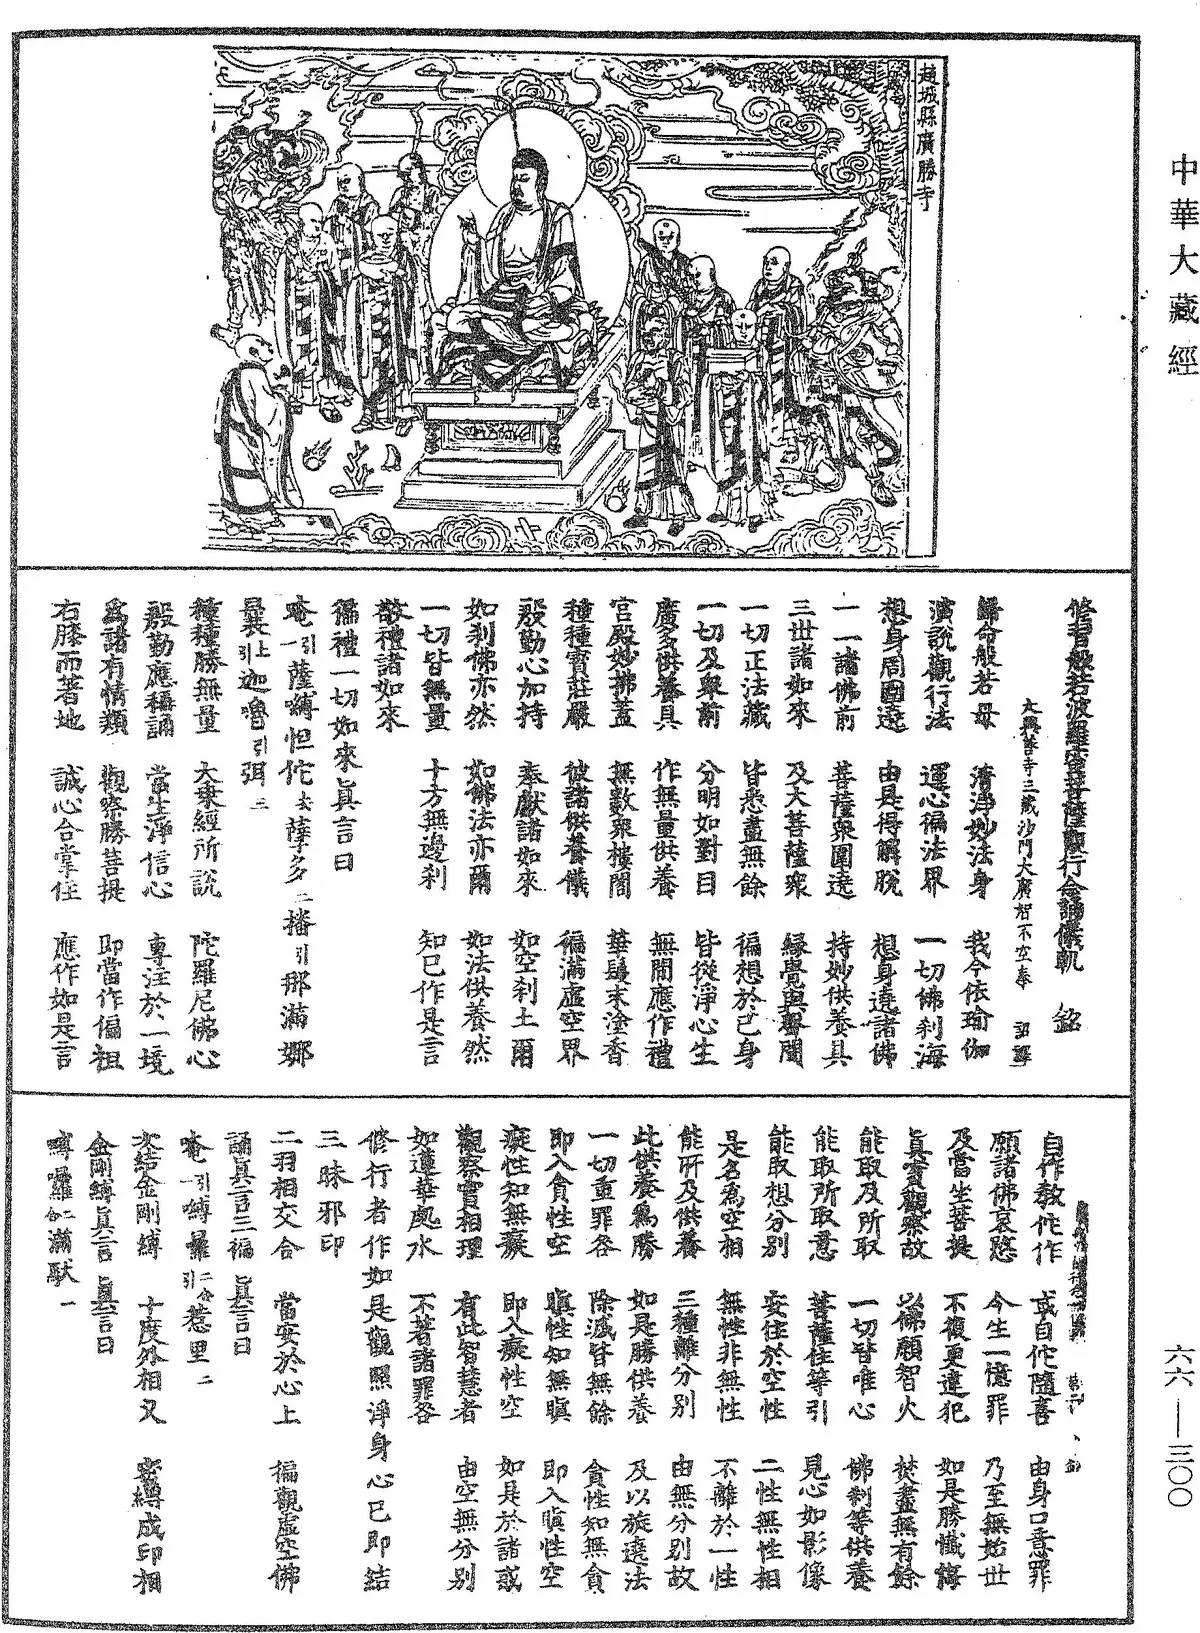 中華大藏經
六六—三〇〇
趙城縣廣勝寺
修習般若波羅蜜菩薩觀行念誦儀軌　銘
大興善寺三藏沙門大廣智不空奉　詔譯
歸命般若母　清淨妙法身　我今依瑜伽
演說觀行法　運心徧法界　一切佛剎海
想身周圍遶　由是得解脫　想身遶諸佛
一一諸佛前　菩薩眾圍遶　持妙供養具
三世諸如來　及大菩薩眾　緣覺與聲聞
一切正法藏　皆悉盡無餘　徧想於己身
一切及眾前　分明如對目　皆從淨心生
廣多供養具　作無量供養　無間應作禮
宮殿妙拂蓋　無數眾樓閣　華鬘末塗香
種種寶莊嚴　彼諸供養儀　徧滿虛空界
殷勤心加持　奉獻諸如來　如空剎土爾
如剎佛亦然　如佛法亦爾　如法供養然
一切皆無量　十方無邊剎　知已作是言
敬禮諸如來
徧禮一切如來真言曰
唵引一薩嚩怛佗去孽多二播引那滿娜
曩上引迦嚕引弭三
種種勝無量　大乘經所說　陀羅尼佛心
殷勤應稱誦　當生淨信心　專注於一境
為諸有情類　觀察勝菩提　即當作偏袒
右膝而著地　誠心合掌住　應作如是言
自作教佗作　或自佗隨喜　由身口意罪
願諸佛哀愍　今生一憶罪　乃至無始世
及當坐菩提　不復更違犯　如是勝懺悔
真實觀察故　以佛願智火　焚盡無有餘
能取及所取　一切皆唯心　佛剎等供養
能取所取意　菩薩住等引　見心如影像
能取想分別　安住於空性　二性無性相
是名為空相　無性非無性　不離於一性
能所及供養　三種離分別　由無分別故
此供養為勝　如是勝供養　及以旋遶法
一切重罪咎　除滅皆無餘　貪性知無貪
即入貪性空　瞋性知無瞋　即入瞋性空
癡性知無癡　即入癡性空　如是於諸惑
觀察實相理　有此智慧者　由空無分別
如蓮華處水　不著諸罪咎
修行者作如是觀照淨身心已即結
三昧邪印
二羽相交合　當安於心上　徧觀虛空佛
誦真言三徧　真言曰
唵一引嚩曰羅二合引惹里二
次結金剛縛　十度外相叉　密縛成印相
金剛縛真言　真言曰
嚩囉二合滿馱一